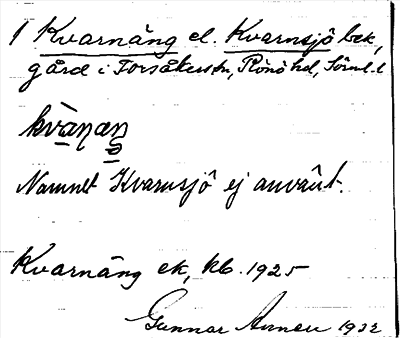 1 Kvarnäng el. Kvarnsjö bek,
gård i Forsåkers sn, Rönö hd, Sörml. l
kvànaŋ
Namnet Kvarnsjö ej använt.
Kvarnäng ek, kb. 1925
Gunnar 1932